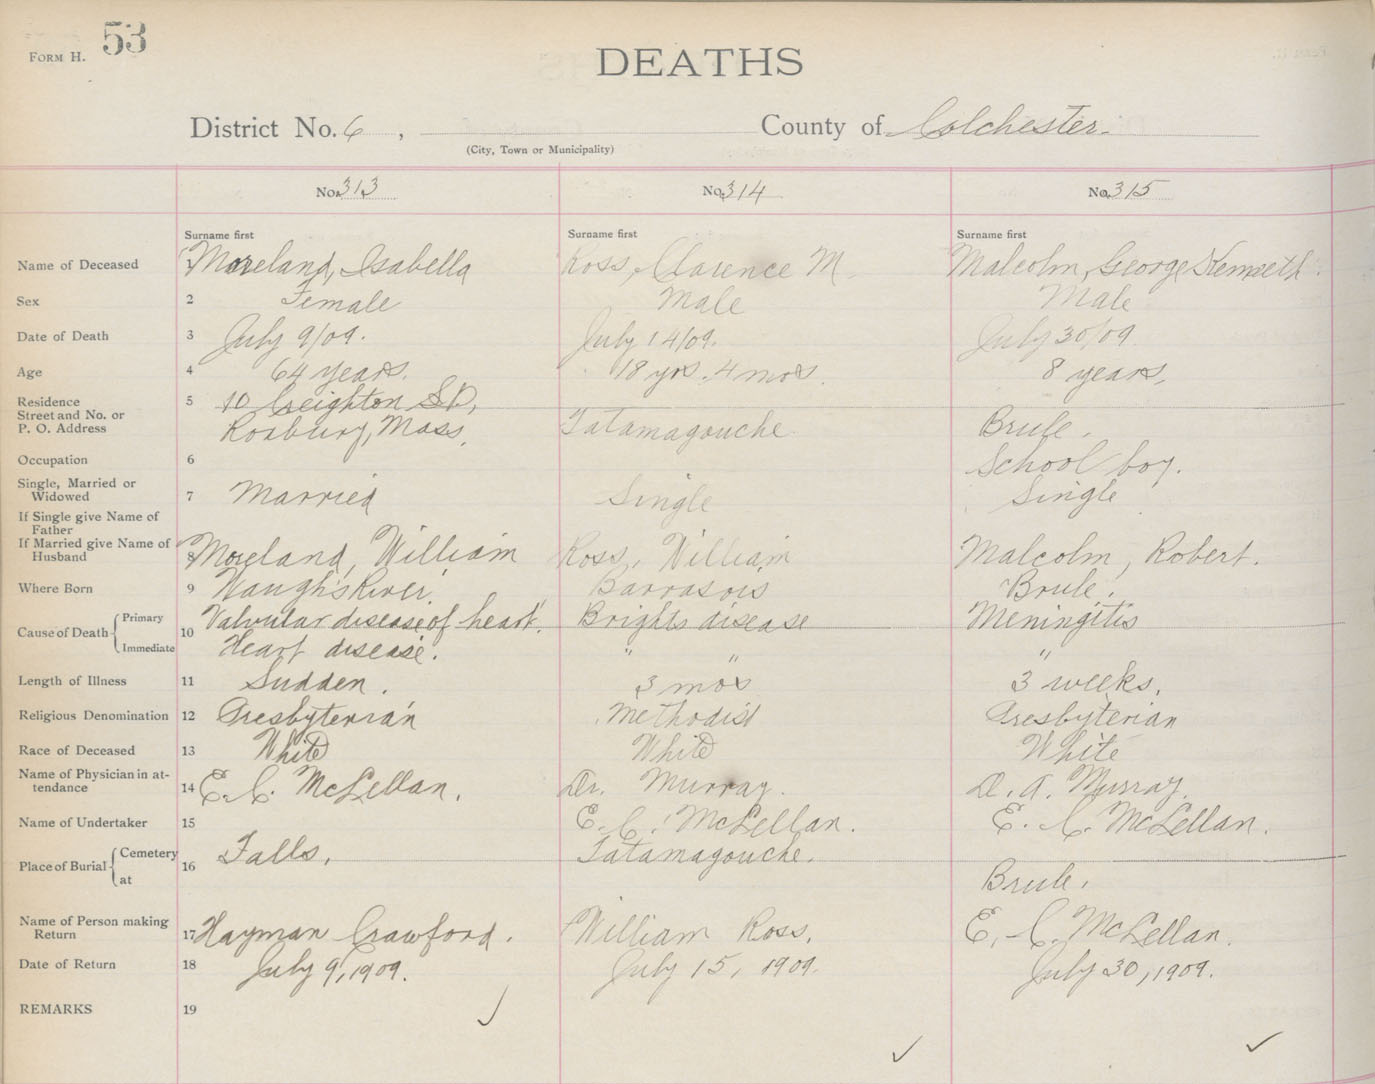 FORM H. 53
DEATHS
District No. 6 , County of Colchester
(City, Town or Municipality)
No. 313 No. 314 No. 315
Surname first Surname first Surname first
Name of Deceased 1 Moreland, Isabella Ross, Clarence M Malcolm, George Kenneth
Sex 2 Female Male Male
Date of Death 3 July 9/09. July 14/09. July 30/09
Age 4 64 years. 18 yrs. 4 mos. 8 years.
Residence 5 10 Creighton St,
Street and No. or
P. O. Address Roxbury, Mass. Tatamagouche Brule.
Occupation 6 School boy.
Single, Married or
Widowed 7 Married Single Single
If Single give Name of
Father
If Married give Name of
Husband 8 Moreland, William Ross, William Malcolm, Robert.
Where Born 9 Waugh's River. Barrasois Brule.
Cause of Death Primary 10 Valvular disease of heart. Brights disease Meningitis
Immediate Heart disease. " " "
Length of Illness 11 Sudden. 3 mos 3 weeks.
Religious Denomination 12 Presbyterian Methodist Presbyterian
Race of Deceased 13 White White White
Name of Physician in at-
tendance 14 E. C. McLellan. Dr. Murray. D. A. Murray.
Name of Undertaker 15 E. C. McLellan. E. C. McLellan.
Place of Burial Cemetery 16 Falls. Tatamagouche.
at Brule.
Name of Person making
Return 17 Hayman Crawford. William Ross. E. C. McLellan.
Date of Return 18 July 9, 1909. July 15, 1909. July 30, 1909.
REMARKS 19